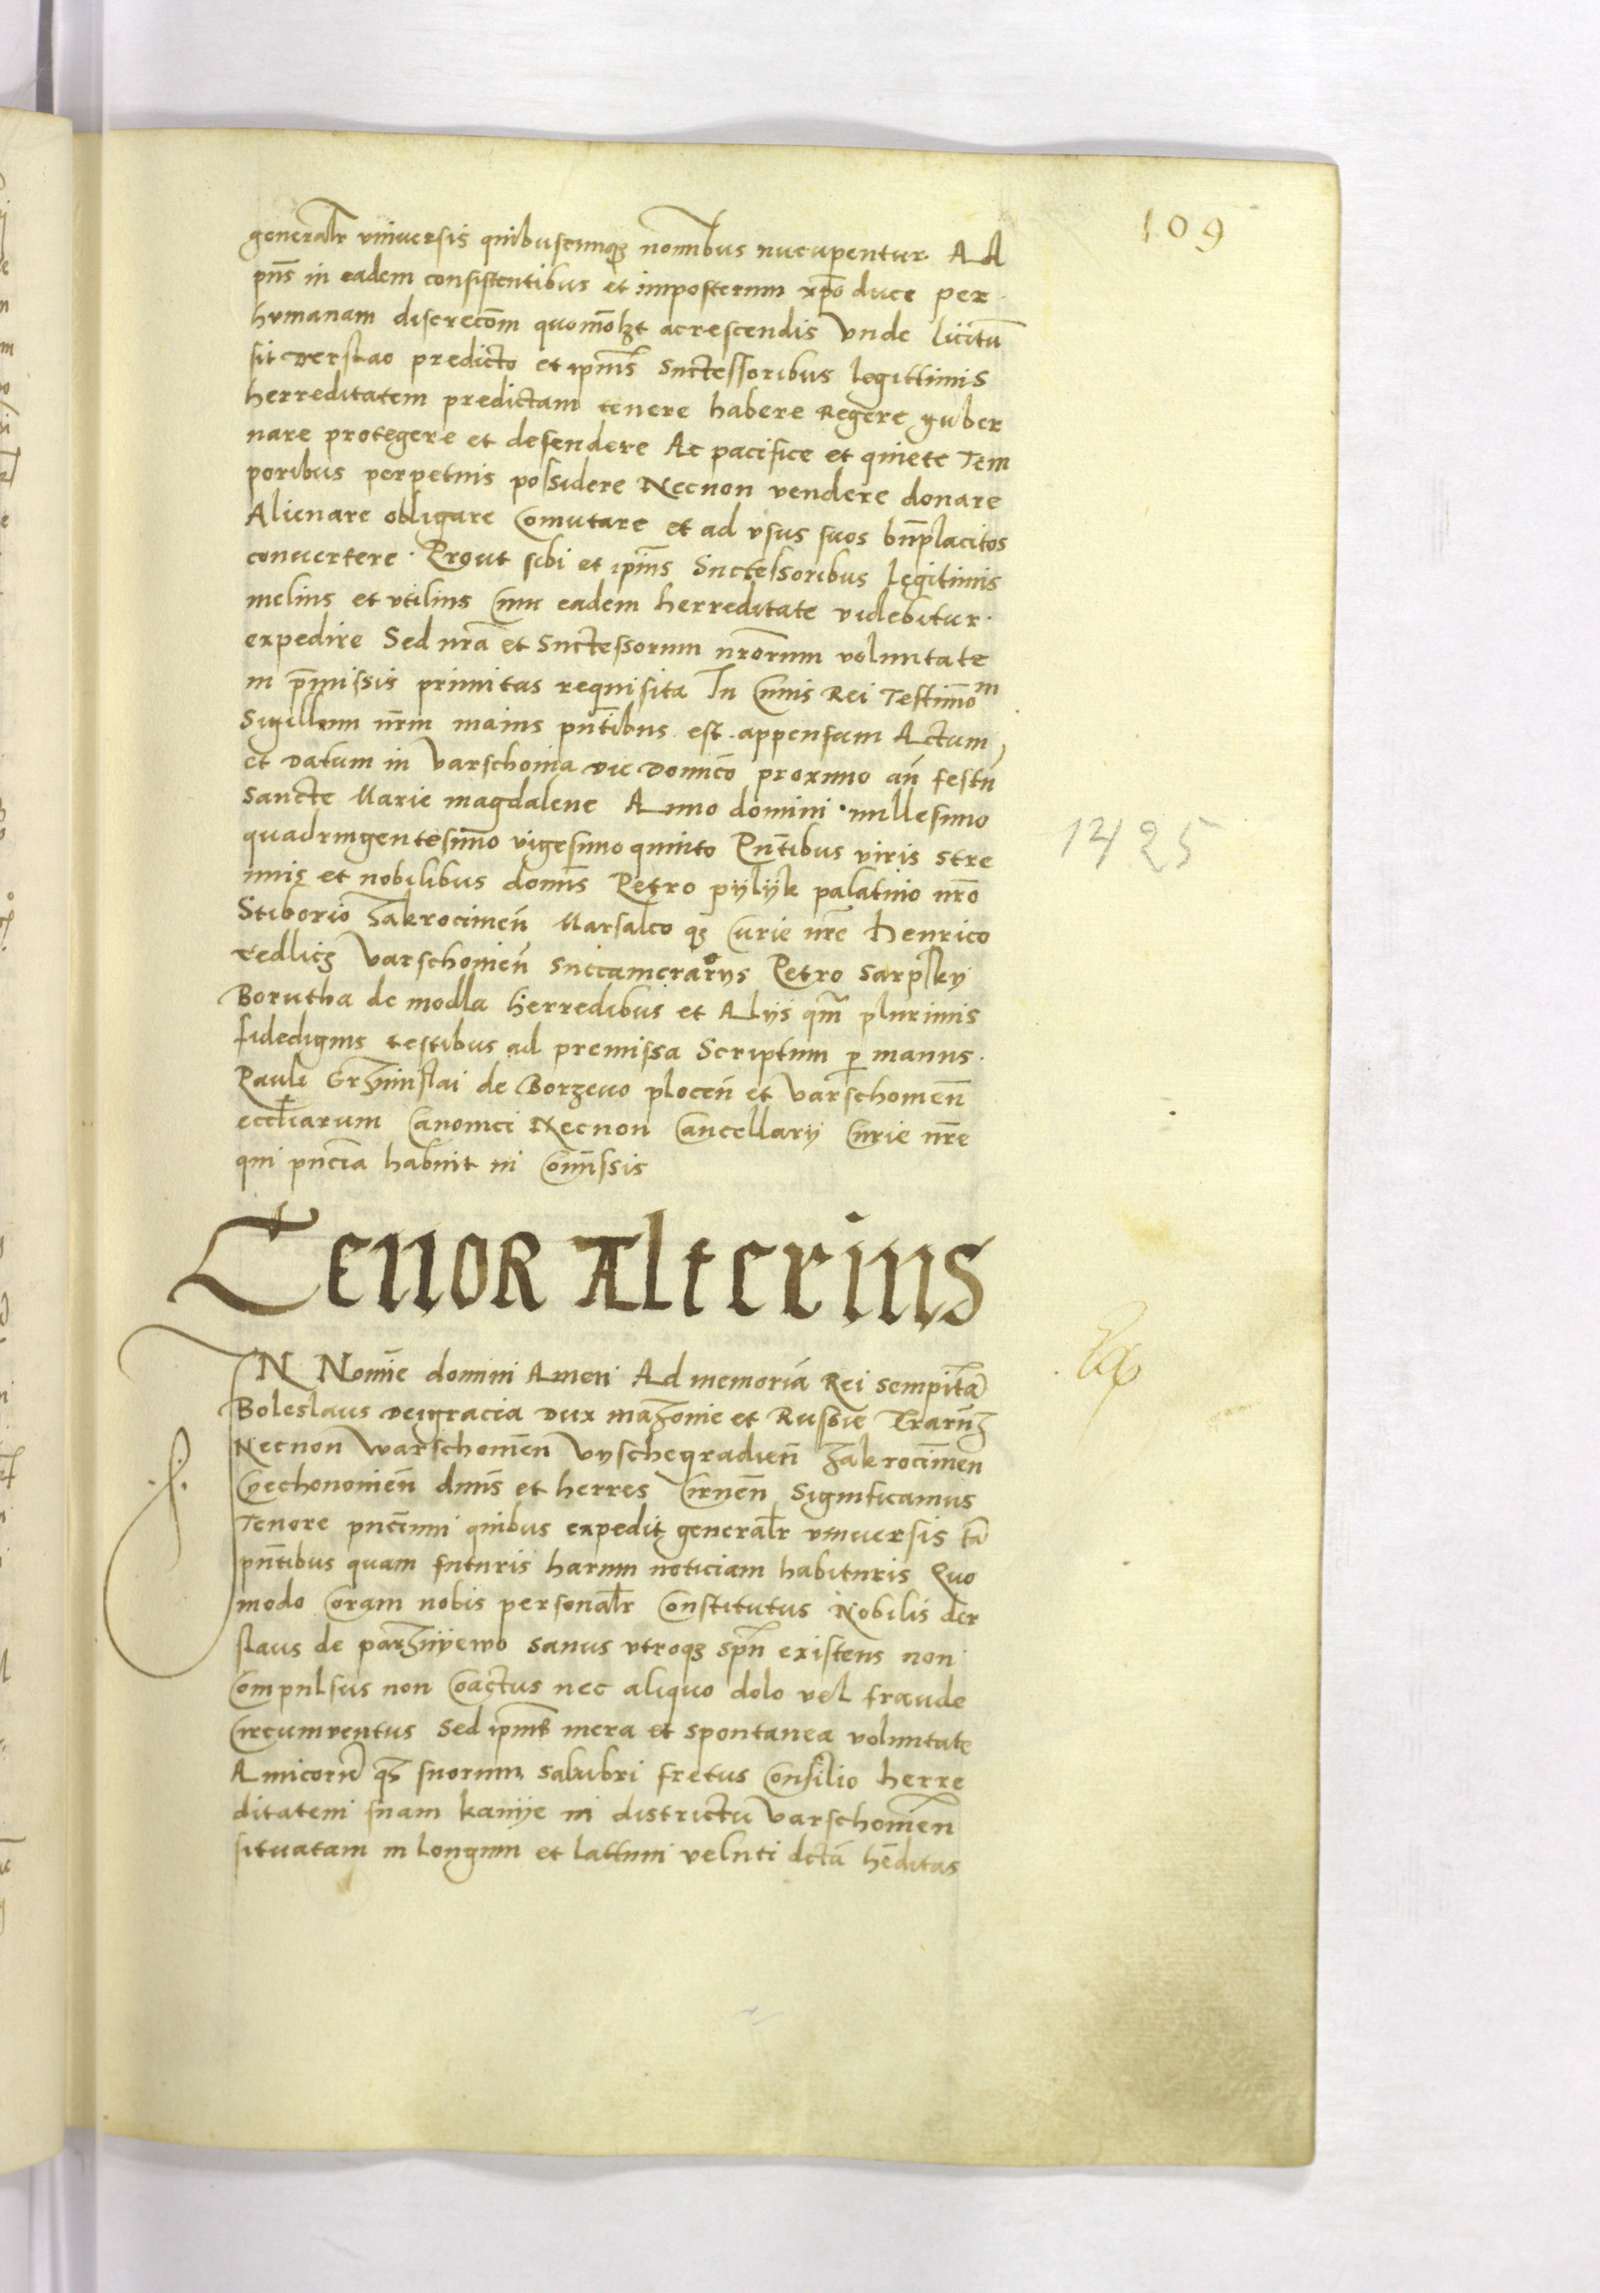 109
generalr vniuersis quibuscumqȝ nomībus nucupentur Ad
pn̄s in eadem consistentibus et imposterum xp̄o duce per
humanam discrecōm quomōlȝt acrescendis Vnde licitū
sit Derslao predicto et ipīus Suctessoribus legittimis
herreditatem predictam tenere habere Regere guber
nare protegere et defendere Ac pacifice et quiete Tem
poribus perpetuis possidere Necnon vendere donare
Alienare obligare Comutare et ad vsus suos bn̄placitos
conuertere. Prout sibi et ipīus Suctessoribus legitimis
melius et vtilius Cum eadem herreditate videbitur
expedire Sed nr̄a et Suctessorum nr̄orum voluntate
in p̄missis primitas requisita In Cuius Rei Testimōm
Sigillum nr̄m maius pn̄tibus est appensum Actum
et Datum in Varschouia die Domīco proximo an̄ festū
Sancte Marie magdalene Anno domini millesimo
quadringentesimo vigesimo quinto Pn̄tibus viris stre
1425
nuis et nobilibus domīs Petro pylyk palatino nr̄o
Stiborio Zakrocimen̄ Marsalco qȝ Curie nr̄e Henrico
redlicȝ Varschouien̄ Succamerarijs Petro Sarpsky
Borutha de modla herredibus et Alijs qm̄ plurimis
fidedignis testibus ad premissa Scriptum p manus
Pauli Grzimslai de Borzeuo plocen̄ et Varschouien̄
eccl̄iarum Canonici Necnon Cancellarij Curie nr̄e
qui pn̄cia habuit in Comīssis
Tenor Alterius
IN Nomīe domini Amen Ad memoriā Rei sempitā
Boleslaus Deigracia Dux mazouie et Russie Trarūȝ
Necnon Warschouien Vyschegradien̄ Zakrocimen
Cyechonouien̄ dn̄us et herres Cirnen̄ Significamus
Tenore pn̄cium quibus expedit generalr vniuersis tā
pn̄tibus quam futuris harum noticiam habituris Quo
modo Coram nobis personalr Constitutus Nobilis Der
slaus de parznyewo sanus vtroqȝ Spn̄ existens non
Compulsus non Coactus nec aliquo dolo vel fraude
Circumventus Sed ipīus mera et spontanea voluntate
Amicorū qȝ suorum salubri fretus Consilio herre
ditatem suam kanije in districtu Varschouien
situatam in longum et lattum veluti dctā hēditas